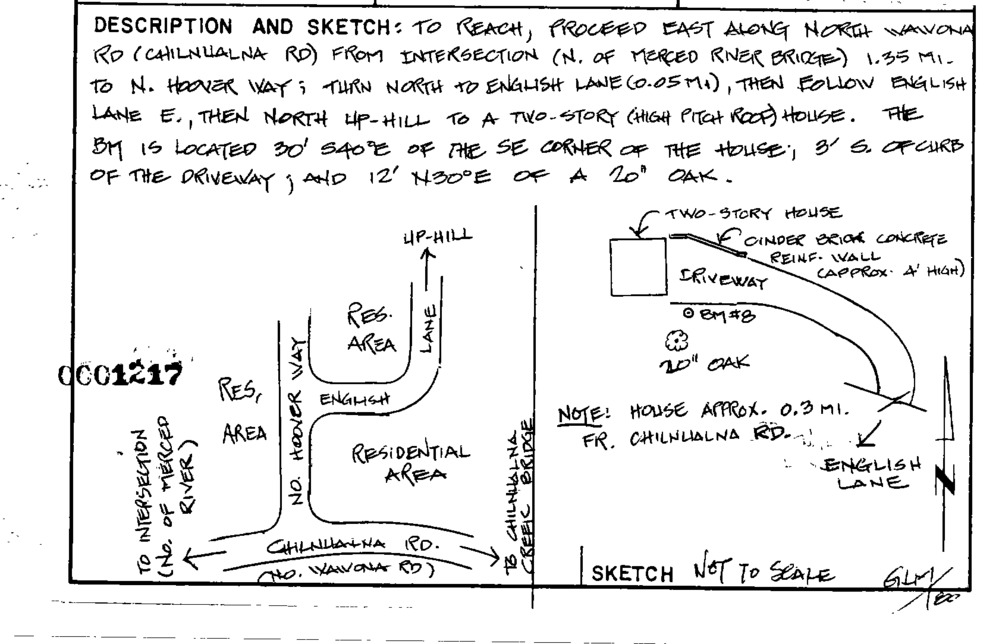 DESCRIPTION AND SKETCH: TO REACH, PROCEED EAST ALONG NORTH WAWONA
RD (CHILNUALNA RD) FROM INTERSECTION (N. OF MERCED RIVER BRIDGE) 1.35 MI.
TO N. HOOVER WAY; TURN NORTH TO ENGLISH LANE (0.05 MI), THEN FOLLOW ENGLISH
LANE E., THEN NORTH UP-HILL TO A TWO-STORY (HIGH PITCH ROOF) HOUSE. THE
BM IS LOCATED 30' S40°E OF THE SE CORNER OF THE HOUSE; 3' S. OF CURB
OF THE DRIVEWAY; AND 12' N30°E OF A 20" OAK.
UP-HILL
RES.
AREA
LANE
ENGLISH
NO. HOOVER WAY
0001217
RES,
AREA
RESIDENTIAL
AREA
TO INTERSECTION
(NO. OF MERCED
RIVER)
CHILNUALNA RD.
(NO. WAWONA RD)
TO CHILNUALNA
CREEK BRIDGE
TWO-STORY HOUSE
CINDER BRICK CONCRETE
REINF. WALL
(APPROX. 4' HIGH)
DRIVEWAY
BM #8
20" OAK
NOTE: HOUSE APPROX. 0.3 MI.
FR. CHILNUALNA RD.
ENGLISH
LANE
N
SKETCH NOT TO SCALE
GLM/80